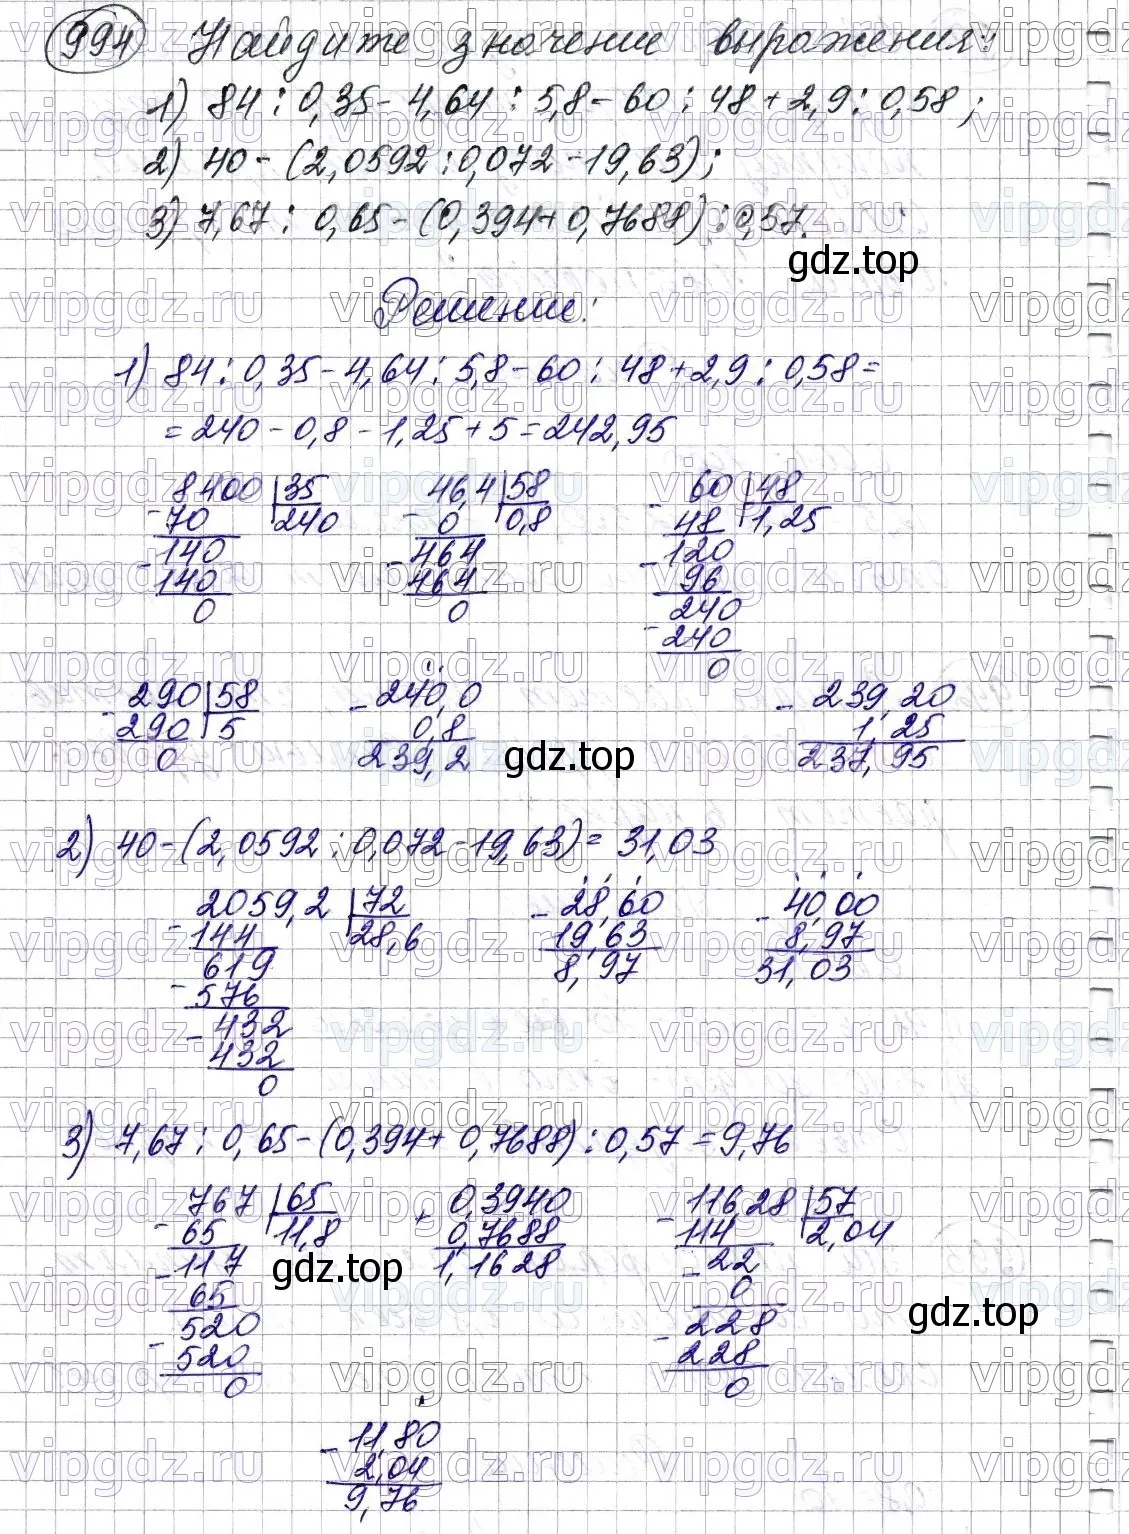 994 Найдите значение выражения:
1) 84 : 0,35 - 4,64 : 5,8 - 60 : 48 + 2,9 : 0,58;
2) 40 - (2,0592 : 0,072 - 19,63);
3) 7,67 : 0,65 - (0,394 + 0,7688) : 0,57.
gdz.top
Решение:
1) 84 : 0,35 - 4,64 : 5,8 - 60 : 48 + 2,9 : 0,58 =
= 240 - 0,8 - 1,25 + 5 = 242,95
8400 | 35 46,4 | 58 60 | 48
- 70 240 - 0 0,8 - 48 1,25
140 464 120
- 140 - 464 - 96
0 0 240
- 240
0
290 | 58 - 240,0 - 239,20
- 290 5 0,8 1,25
0 239,2 237,95
gdz.top
2) 40 - (2,0592 : 0,072 - 19,63) = 31,03
2059,2 | 72 - 28,60 - 40,00
- 144 28,6 19,63 8,97
619 8,97 31,03
- 576
432
- 432
0
3) 7,67 : 0,65 - (0,394 + 0,7688) : 0,57 = 9,76
767 | 65 + 0,3940 116,28 | 57
- 65 11,8 0,7688 - 114 2,04
117 1,1628 22
- 65 - 0
520 228
- 520 - 228
0 0
gdz.top
gdz.top
- 11,80
2,04
9,76
vipgdz.ru